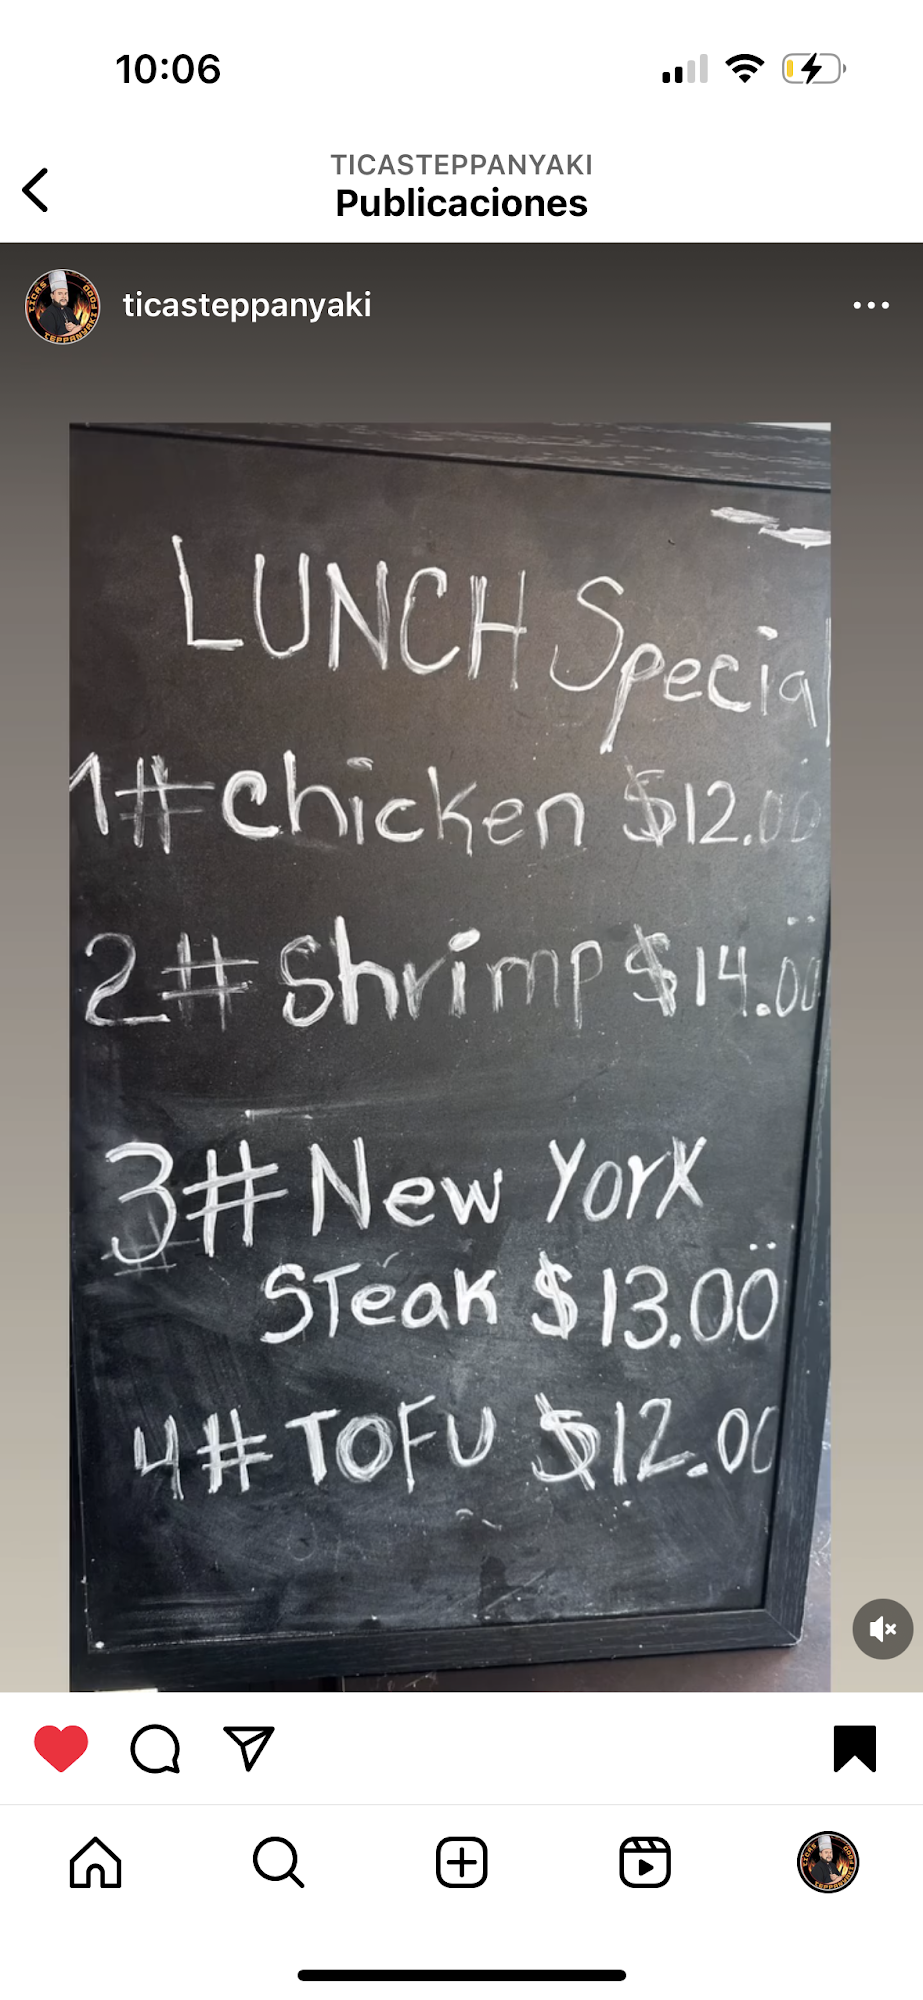 10:06
TICASTEPPANYAKI
Publicaciones
ticasteppanyaki
LUNCH Special
1# chicken $12.00
2# Shrimp $14.00
3# New York
STeak $13.00
4# TOFU $12.00